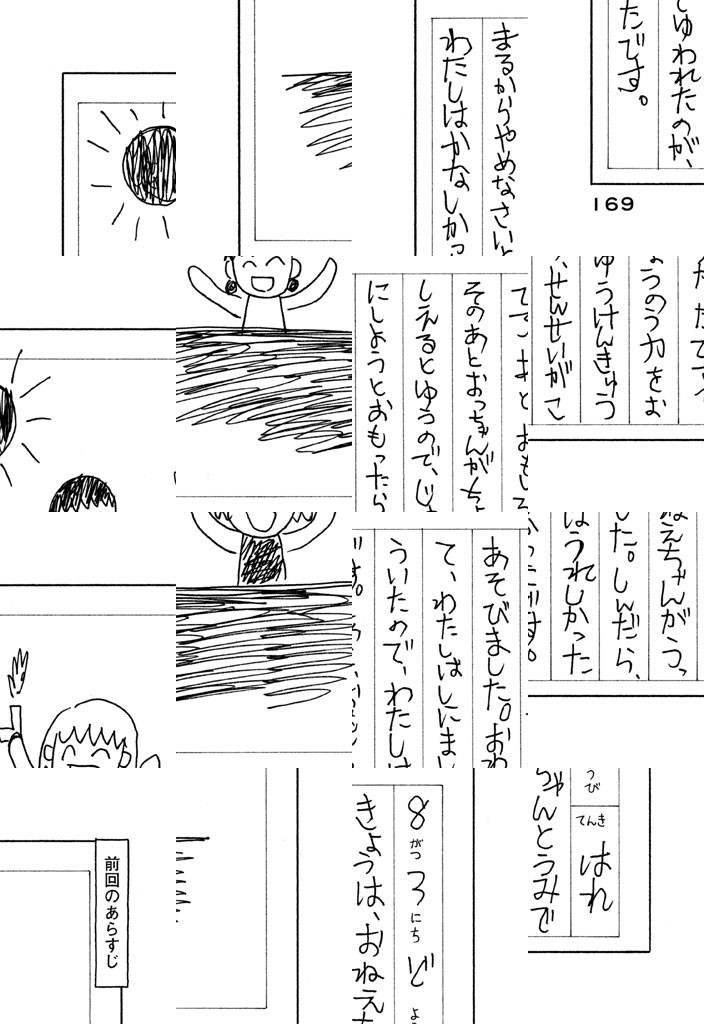 まるからやめなさいと
わたしはかなしかっ
てゆわれたのが、
たです。
169
てでこまとおもしろ
そのあとおっちゃんがち
しえるとゆうので、じ
にしようとおもったら
ようのう力をお
ゆうけんきゅう
、せんせいがこ
あそびました。おね
て、わたしはしにま
ういたので、わたしは
です。
ねえちゃんがうっ
した。しんだら、
はうれしかった
かったです。
前回のあらすじ
8がつ3にちどよ
きょうは、おねえち
うび てんき はれ
ちゃんとうみで